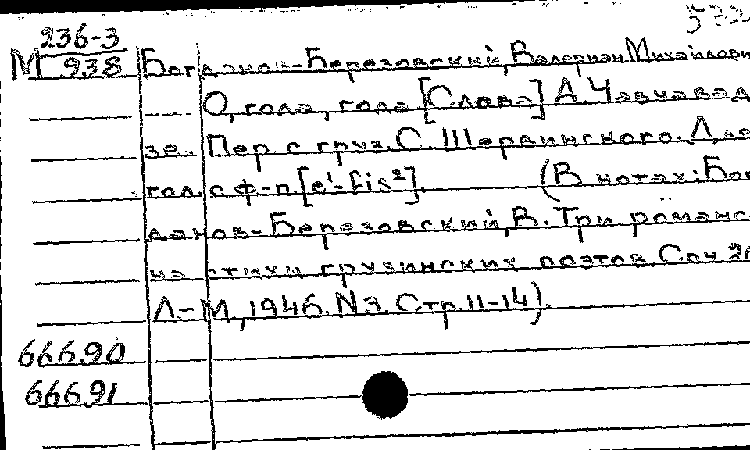 236-3
М 938 Богданов-Березовский, Валериан Михайлови
О, гола, гола [Слова] А. Чавчавад
зе. Пер. с груз. С. Шервинского. Для
гол. с ф-п [e¹-fis²]. (В нотах: Бог
данов-Березовский, В. Три романс
на стихи грузинских поэтов. Соч 26
Л-М, 1946. N3. Стр. 11-14).
66690
66691